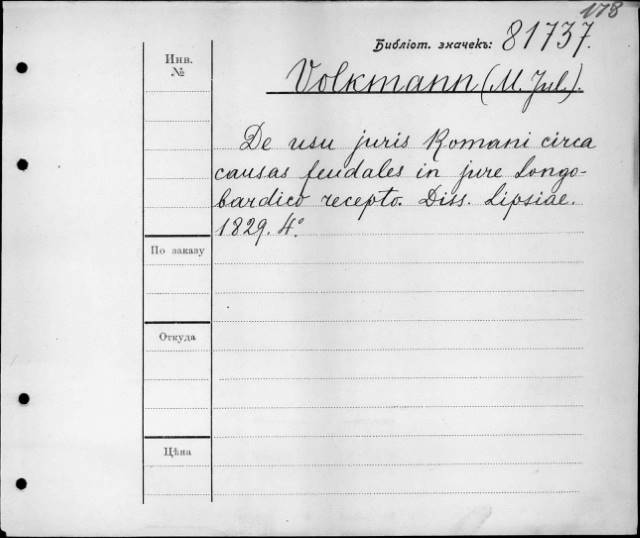 178
Библіот. значекъ: 81737.
Инв.
№
Volkmann (M. Jul.).
De usu juris Romani circa
causas feudales in jure Longo-
bardico recepto. Diss. Lipsiae.
1829. 4°.
По заказу
Откуда
Цѣна